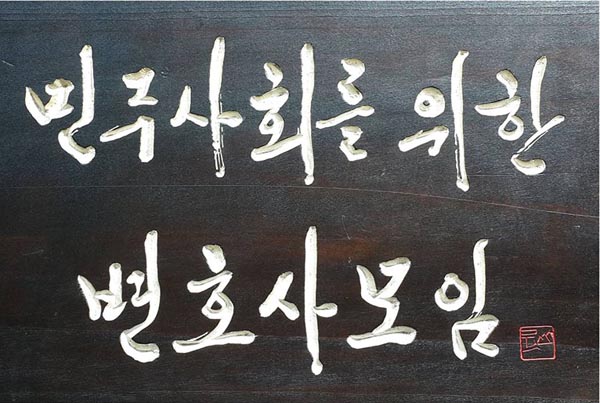 민주사회를 위한
변호사모임